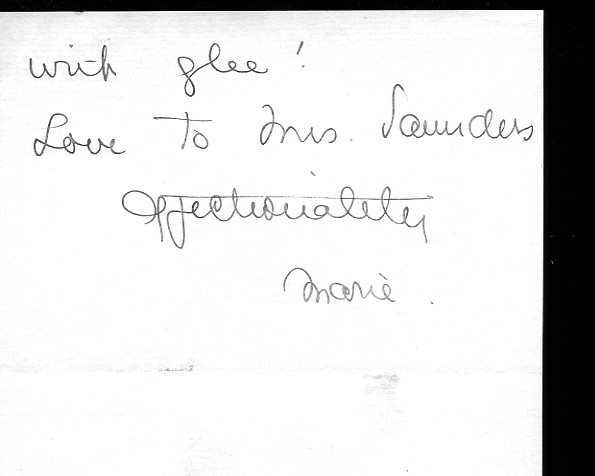 with glee!
Love to Mrs. Saunders
Affectionately
Marie.